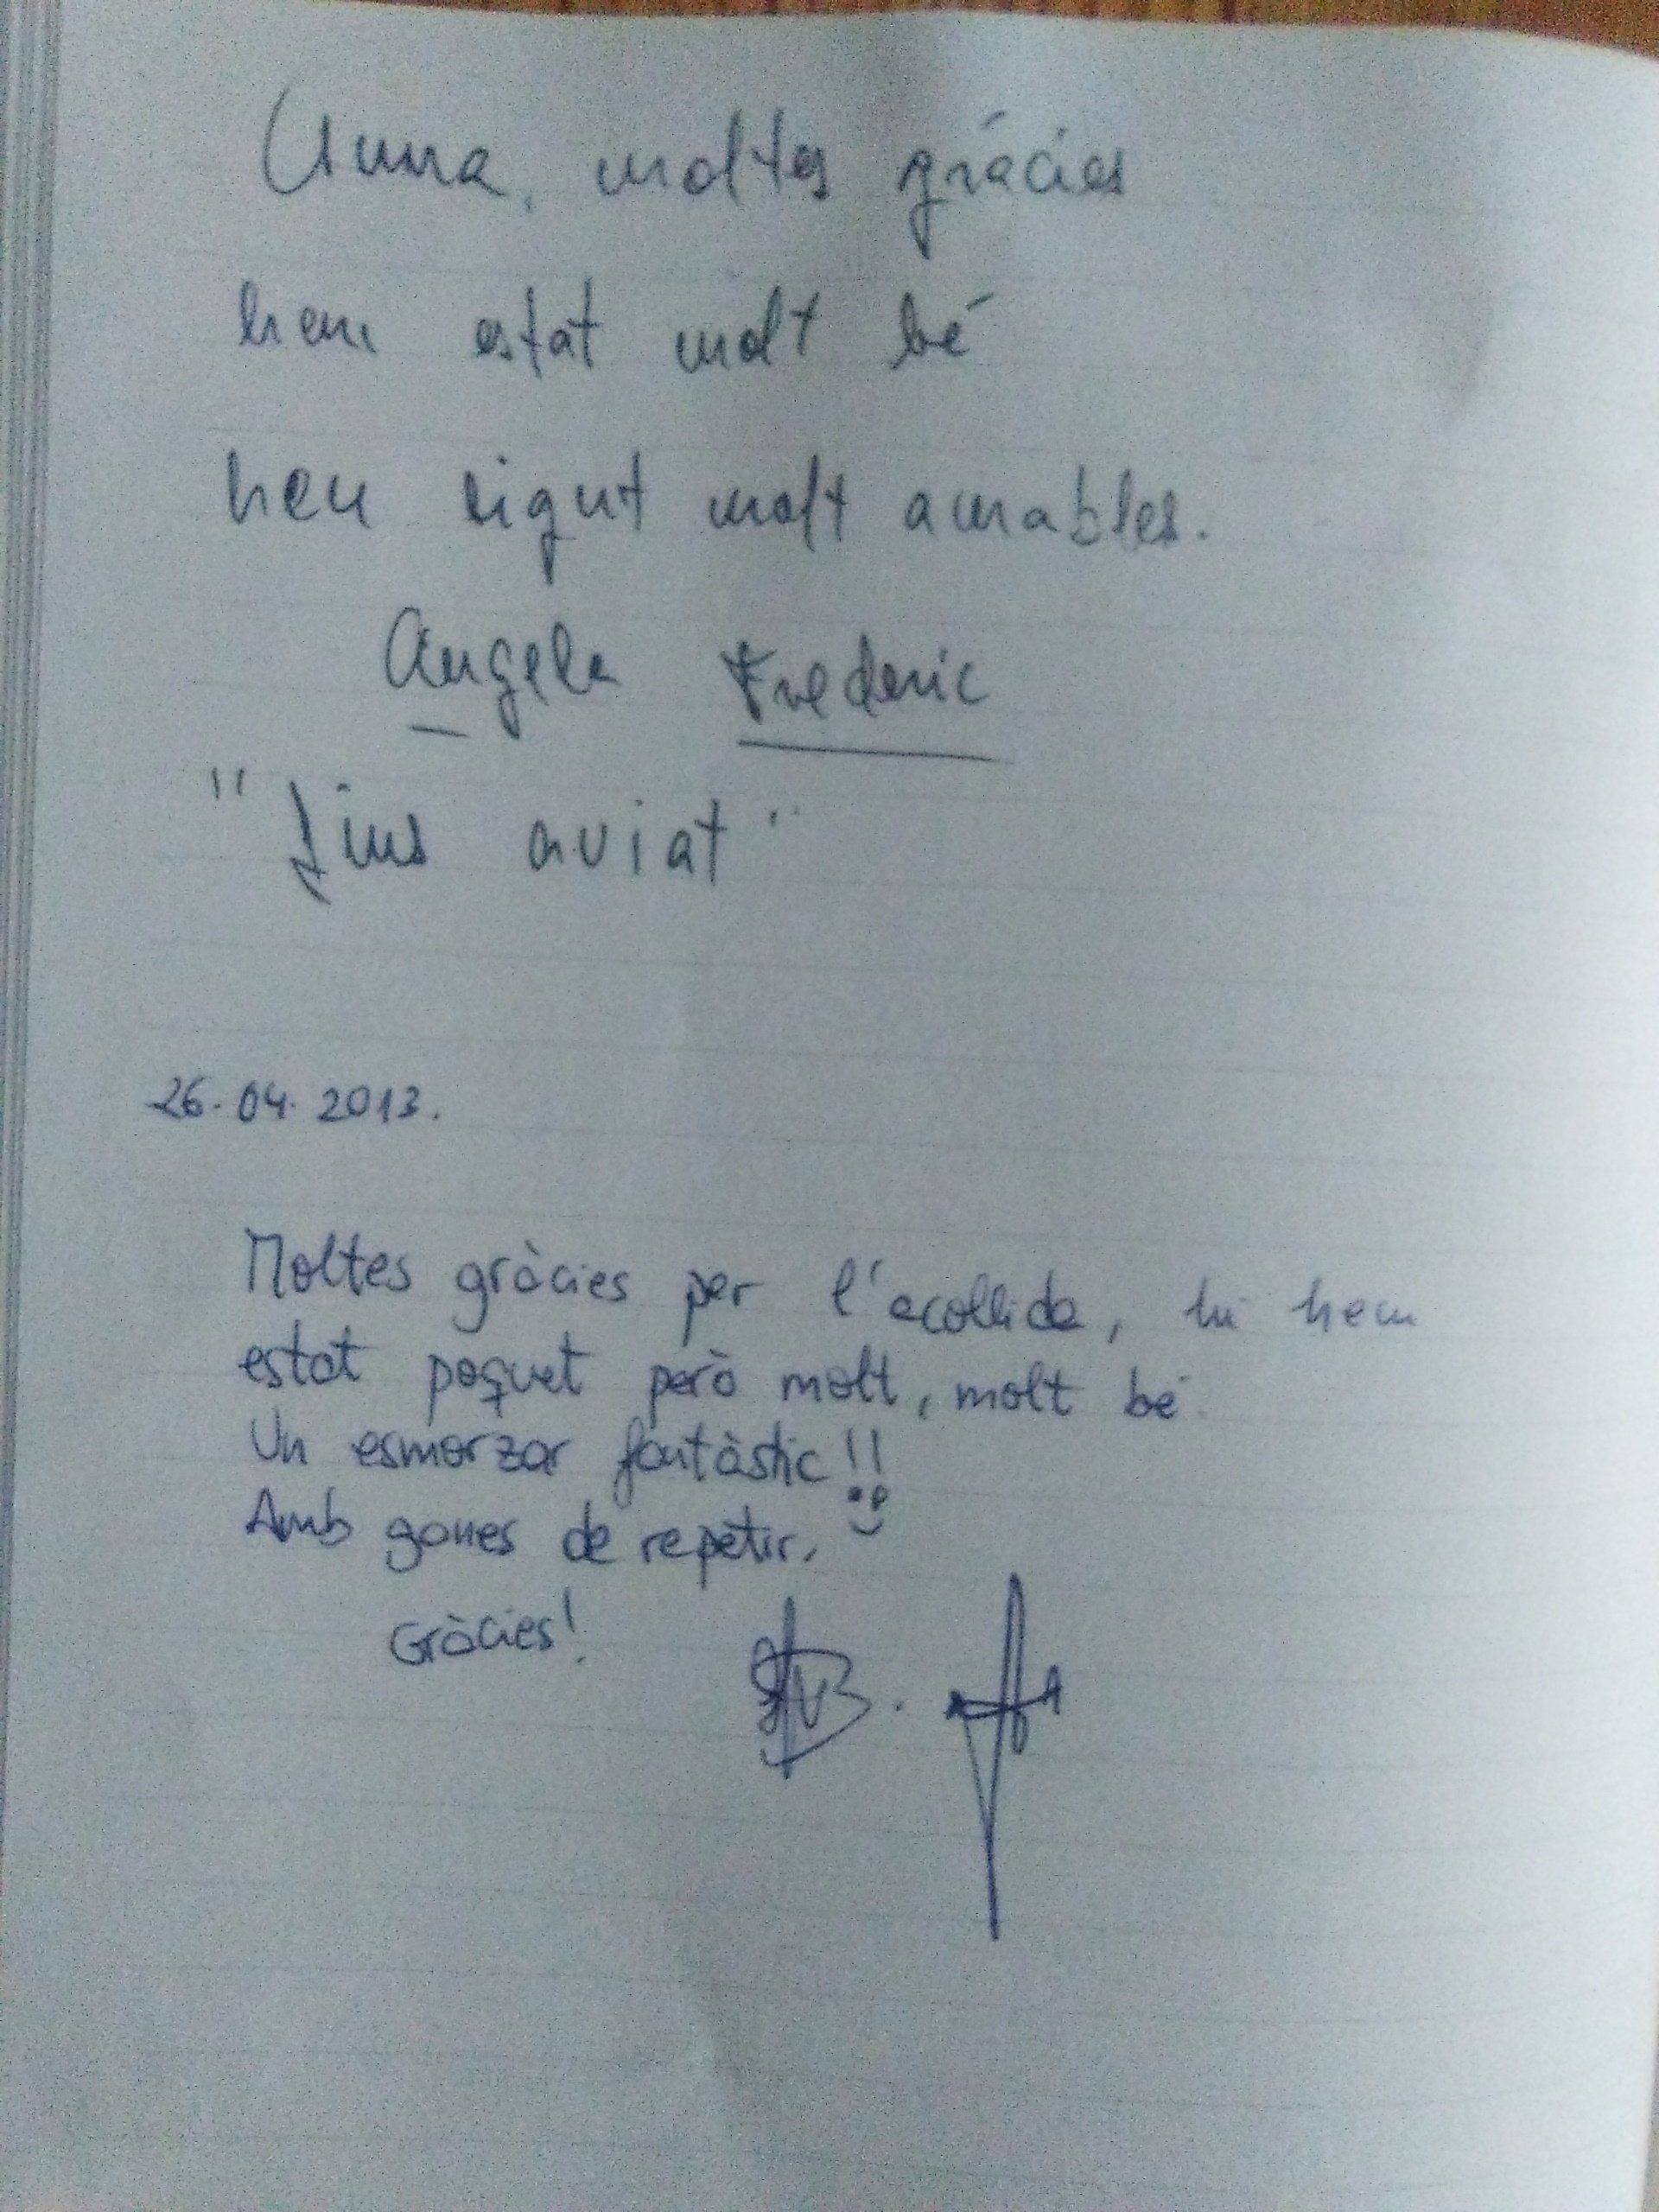 Anna, moltes grácies
hem estat molt bé
heu sigut molt amables.
Angela Frederic
"Fins aviat"
26.04.2013.
Moltes gràcies per l'acollida, hi hem
estat poquet però molt, molt bé.
Un esmorzar fantàstic!!
Amb ganes de repetir.
Gràcies!